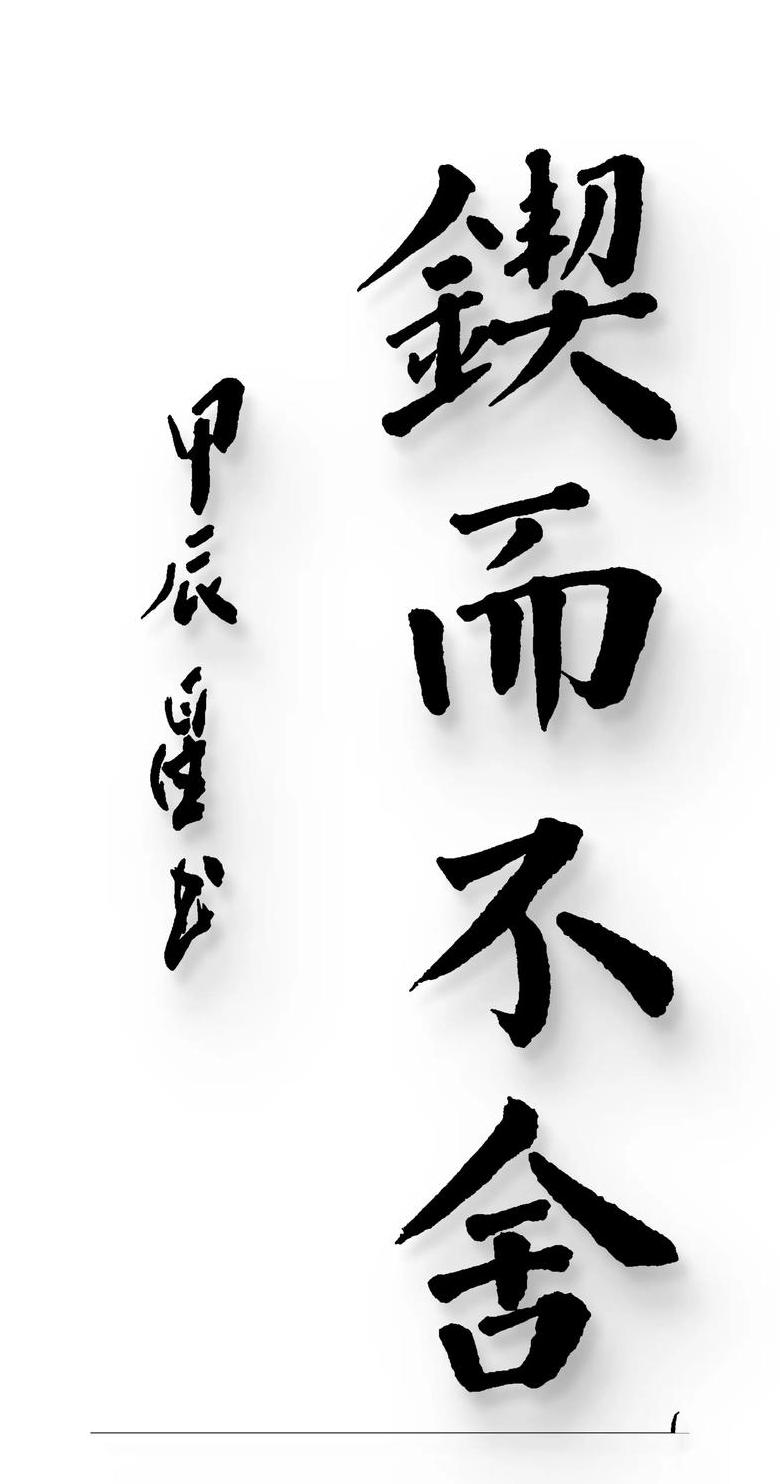 鍥而不舍
甲辰 书